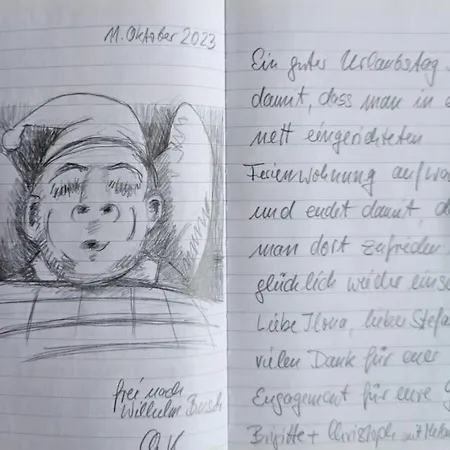 11. Oktober 2023
frei nach
Wilhelm Busch
Ein guter Urlaubstag
damit, dass man in
nett eingerichteten
Ferienwohnung aufwa
und endet damit, d
man dort zufrieden
glücklich wieder einsc
Liebe Ilona, lieber Stefa
vielen Dank für euer
Engagement für eure
Brigitte + Christoph mit